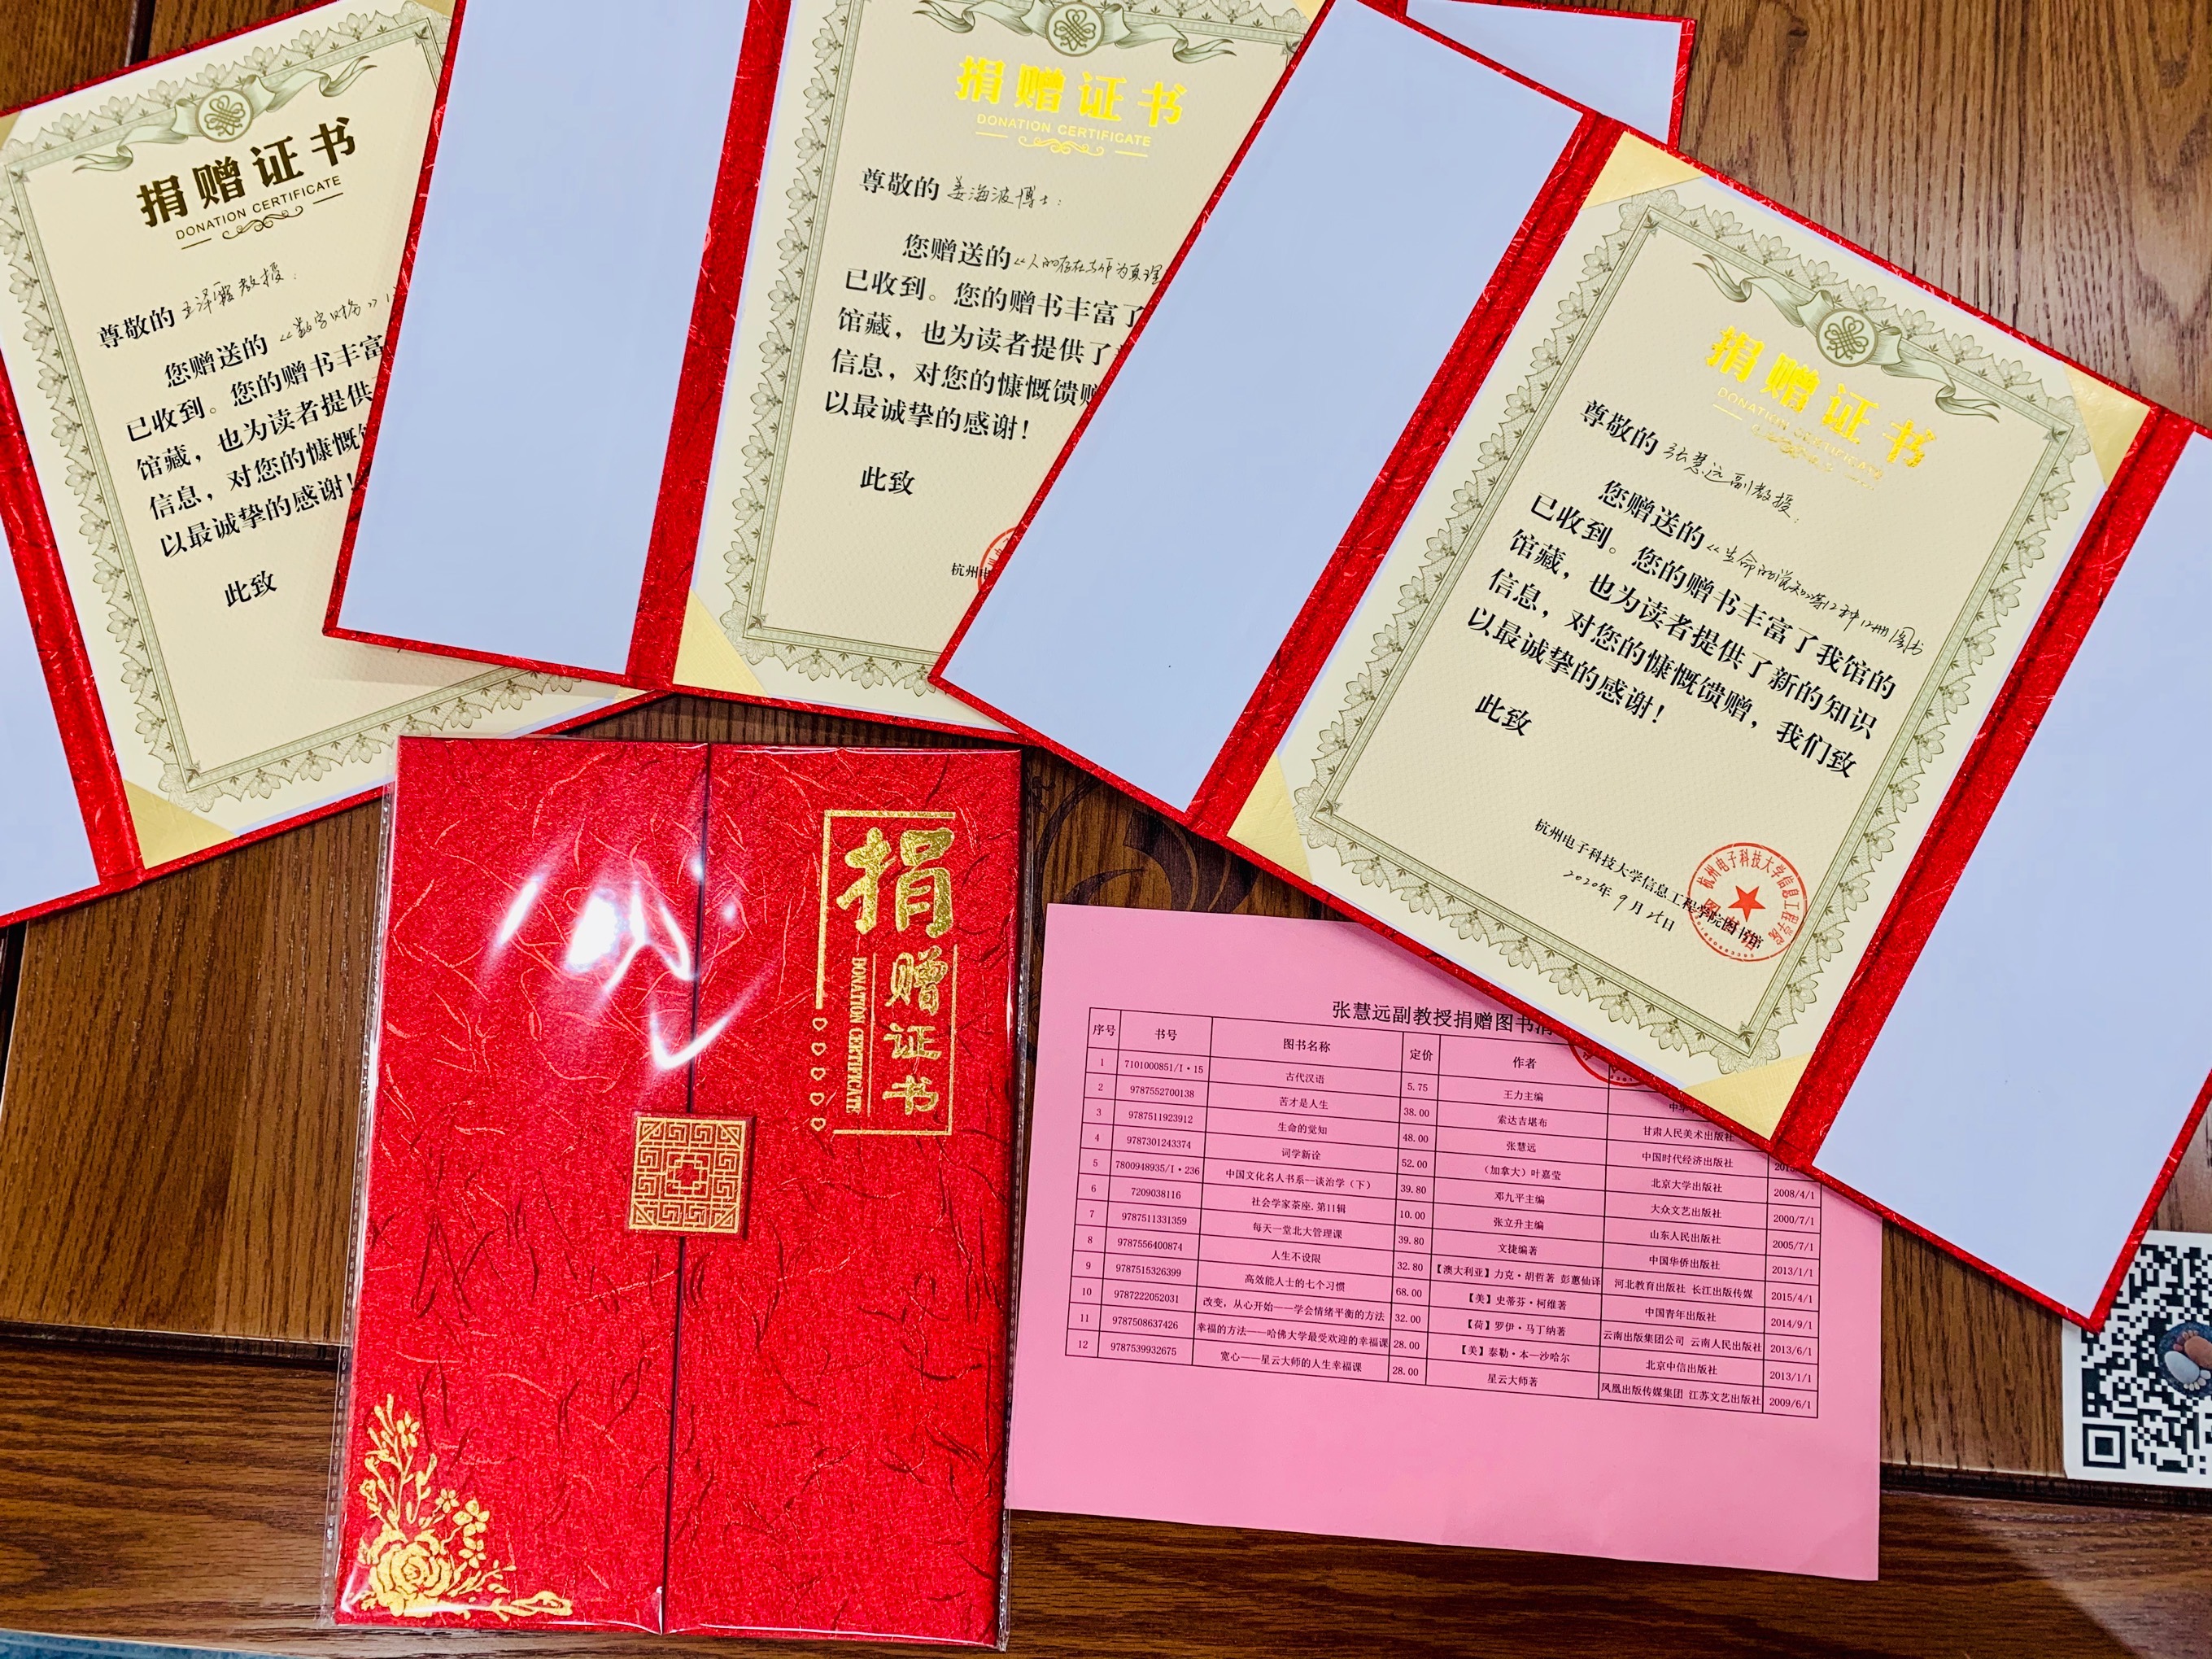 捐赠证书
DONATION CERTIFICATE
尊敬的 王泽霞教授：
您赠送的《数字财务》
已收到。您的赠书丰富
馆藏，也为读者提供
信息，对您的慷慨
以最诚挚的感谢！
此致
捐赠证书
DONATION CERTIFICATE
尊敬的 姜海波博士：
您赠送的《人的存在
已收到。您的赠书丰富了
馆藏，也为读者提供了
信息，对您的慷慨馈赠
以最诚挚的感谢！
此致
杭州电
捐赠证书
DONATION CERTIFICATE
尊敬的 张慧远副教授：
您赠送的《生命的觉知》等12种12册图书
已收到。您的赠书丰富了我馆的
馆藏，也为读者提供了新的知识
信息，对您的慷慨馈赠，我们致
以最诚挚的感谢！
此致
杭州电子科技大学信息工程学院图书馆
2020年9月25日
杭州电子科技大学信息工程学院
图书馆
捐赠证书
DONATION CERTIFICATE
张慧远副教授捐赠图书清
序号 书号 图书名称 定价 作者
1 7101000851/I·15 古代汉语 5.75 王力主编 中华
2 9787552700138 苦才是人生 38.00 索达吉堪布 甘肃人民美术出版社
3 9787511923912 生命的觉知 48.00 张慧远 中国时代经济出版社
4 9787301243374 词学新诠 52.00 （加拿大）叶嘉莹 北京大学出版社 2008/4/1
5 7800948935/I·236 中国文化名人书系—谈治学（下） 39.80 邓九平主编 大众文艺出版社 2000/7/1
6 7209038116 社会学家茶座.第11辑 10.00 张立升主编 山东人民出版社 2005/7/1
7 9787511331359 每天一堂北大管理课 39.80 文捷编著 中国华侨出版社 2013/1/1
8 9787556400874 人生不设限 32.80 【澳大利亚】力克·胡哲著 彭蕙仙译 河北教育出版社 长江出版传媒 2015/4/1
9 9787515326399 高效能人士的七个习惯 68.00 【美】史蒂芬·柯维著 中国青年出版社 2014/9/1
10 9787222052031 改变，从心开始——学会情绪平衡的方法 32.00 【荷】罗伊·马丁纳著 云南出版集团公司 云南人民出版社 2013/6/1
11 9787508637426 幸福的方法——哈佛大学最受欢迎的幸福课 28.00 【美】泰勒·本—沙哈尔 北京中信出版社 2013/1/1
12 9787539932675 宽心——星云大师的人生幸福课 28.00 星云大师著 凤凰出版传媒集团 江苏文艺出版社 2009/6/1